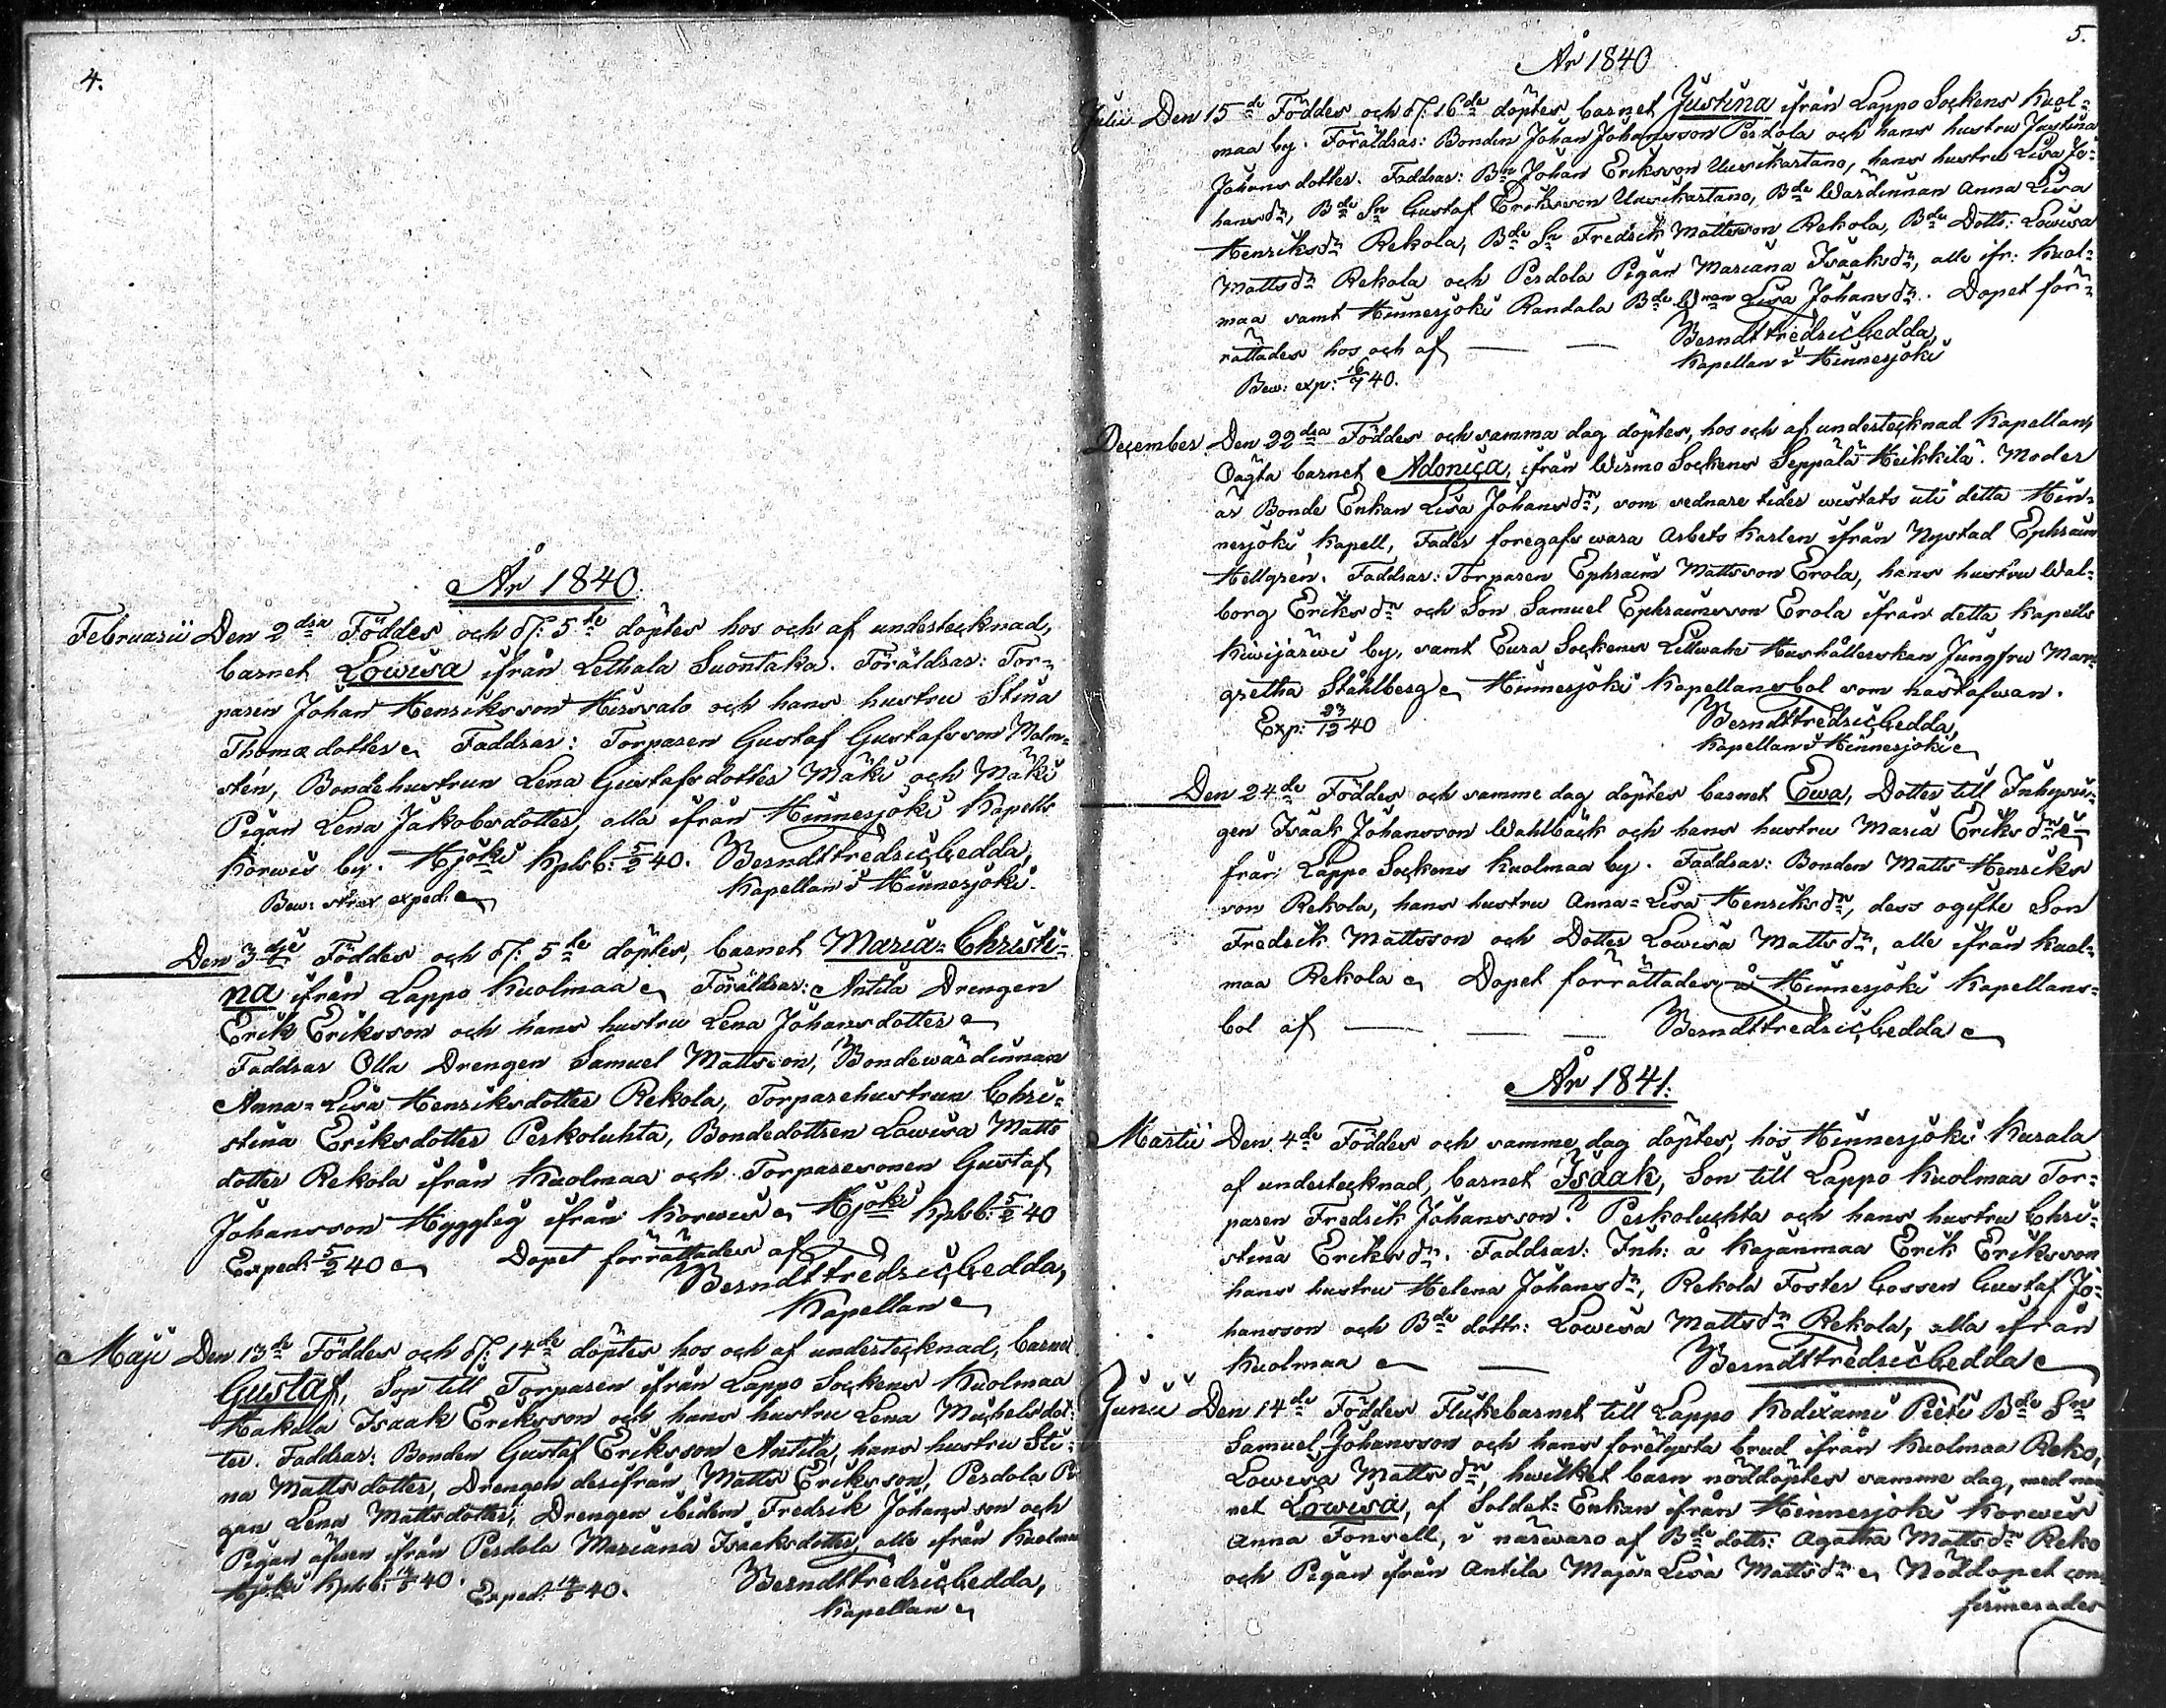 4.
År 1840.
Februarii Den 2dra Föddes och d/: 5te döptes hos och af undertecknad,
barnet Lowisa ifrån Lethala Suontaka. Föräldrar: Tor-
paren Johan Henriksson Hirssalo och hans hustru Stina
Thomædotter. Faddrar: Torparen Gustaf Gustafsson Malm-
stén, Bondehustrun Lena Gustafsdotter Mäki och Mäki
Pigan Lena Jakobsdotter, alla ifrån Hinnerjoki Kapells
Korwis by. Hjoki Kplsb: 5/2 40. Berndt Fredric Gedda,
Bew: strax exped: Kapellan i Hinnerjoki.
Den 3dje Föddes och d/: 5te döptes, barnet Maria-Christi-
na ifrån Lappo Kuolmaa. Föräldrar: Antila Drengen
Erik Eriksson och hans hustru Lena Johansdotter
Faddrar Olla Drengen Samuel Mattsson, Bondewärdinnan
Anna-Lisa Henriksdotter Rekola, Torparehustrun Chri-
stina Eriksdotter Perkoluhta, Bondedottren Lowisa Matts
dotter Rekola ifrån Kuolmaa och Torparesonen Gustaf
Johansson Hygglig ifrån Korwis. Hjoki Kplsb: 5/2 40
Exped: 5/2 40 Dopet förrättades af
Berndt Fredric Gedda,
Kapellan
Maji Den 13de Föddes och d/: 14de döptes hos och af undertecknad, barnet
Gustaf, Son till Torparen ifrån Lappo Sockens Kuolmaa
Hakala Isaak Eriksson och hans hustru Lena Michelsdot-
ter. Faddrar: Bonden Gustaf Eriksson Antila, hans hustru Sti-
na Mattsdotter, Drengen derifrån Matts Eriksson, Perdola Pi-
gan Lena Mattsdotter, Drengen ibidem Fredrik Johansson och
Pigan äfwen ifrån Perdola Mariana Isaaksdotter, alle ifrån Kuolmaa
Hjoki Kplsb: 14/5 40. Exped: 14/5 40. Berndt Fredric Gedda,
Kapellan
5.
År 1840
Julii Den 15de Föddes och d/: 16de döptes barnet Justina ifrån Lappo Sockens Kuol-
maa by. Föräldrar: Bonden Johan Johansson Perdola och hans hustru Justina
Johansdotter. Faddrar: Bn Johan Eriksson Uusikartano, hans hustru Lisa Jo-
hansdr, Bde Sn Gustaf Eriksson Uusikartano, Bde Wärdinnan Anna Lisa
Henriksdr Rekola, Bde Sn Fredrik Mattsson Rekola, Bde Dottr: Lowisa
Mattsdr Rekola och Perdola Pigan Mariana Isaaksdr, alle ifr: Kuol-
maa samt Hinnerjoki Randala Bde Wnan Lisa Johansdr. Dopet för-
rättades hos och af — — Berndt Fredric Gedda,
Bew: exp: 16/7 40. Kapellan i Hinnerjoki
December Den 22dra Föddes och samma dag döptes, hos och af undertecknad Kapellan,
Oägta barnet Adoniça, ifrån Wirmo Sockens Seppälä Heikkilä. Moder
är Bonde Enkan Lisa Johansdr, som sednare tider wistats uti detta Hin-
nerjoki Kapell, Fader föregafs wara Arbets Karlen ifrån Nystad Ephraim
Hellgren. Faddrar: Torparen Ephraim Mattsson Erola, hans hustru Wal-
borg Eriksdr och Son Samuel Ephraimsson Erola ifrån detta Kapells
Kiwijärwi by, samt Eura Sockens Hushållerskan Jungfru Mar-
gretha Ståhlberg. Hinnerjoki Kapellansbol som
Exp: 23/12 40 Berndt Fredric Gedda,
Kapellan i Hinnerjoki
Den 24de Föddes och samme dag döptes barnet Ewa, Dotter till Inhysin-
gen Isaak Johansson Wahlbäck och hans hustru Maria Eriksdr i-
från Lappo Sockens Kuolmaa by. Faddrar: Bonden Matts Henriks
son Rekola, hans hustru Anna-Lisa Henriksdr, dess ogifte Son
Fredrik Mattsson och Dotter Lowisa Mattsdr, alle ifrån Kuol-
maa Rekola. Dopet förrättades å Hinnerjoki Kapellans-
bol af — — Berndt Fredric Gedda
År 1841.
Martii Den 4de Föddes och samme dag döptes, hos Hinnerjoki Kusala
af undertecknad, barnet Isaak, Son till Lappo Kuolmaa Tor-
paren Fredrik Johansson? Perkoluchta och hans hustru Chri-
stina Eriksdr. Faddrar: Inh: å Kajanmaa Erik Eriksson
hans hustru Helena Johansdr, Rekola Foster Gossen Gustaf Jo-
hansson och Bde dottr: Lowisa Mattsdr Rekola, alla ifrån
Kuolmaa — Berndt Fredric Gedda
Junii Den 14de Föddes Flickebarnet till Lappo Kodixami Pieti Bde Sn
Samuel Johansson och hans förelysta brud ifrån Kuolmaa Reko,
Lowisa Mattsdr, hwilket barn nöddöptes samme dag, med nam-
net Lowisa, af Soldat-Enkan ifrån Hinnerjoki Korwis
Anna Fonsell, i närwaro af Bde dottr: Agatha Mattsdr Reko
och Pigan ifrån Antila Maja-Lisa Mattsdr. Nöddopet con-
firmerades